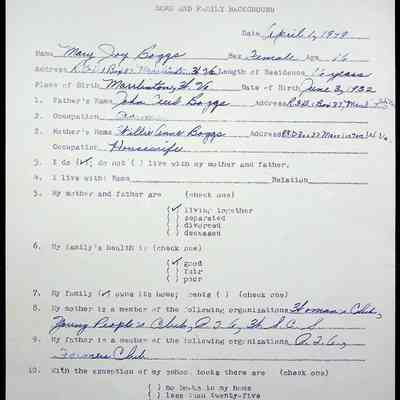 HOME AND FAMILY BACKGROUND
Date April 1, 1949
Name Mary Joy Boggs Sex Female Age 16
Address R.F.D. 1 Box 37 Marlinton, W. Va Length of Residence 16 years
Place of Birth Marlinton, W. Va Date of Birth June 3, 1932
1. Father's Name John Boggs Address R.F.D. 1 Box 37, Marl
2. Occupation
2. Mother's Name Willie Anne Boggs Address Box 37 Marlinton, W. Va
Occupation Housewife
3. I do (✓), do not ( ) live with my mother and father.
4. I live with: Name Relation
5. My mother and father are (check one)
(✓) living together
( ) separated
( ) divorced
( ) deceased
6. My family's health is (check one)
(✓) good
( ) fair
( ) poor
7. My family (✓) owns its home; rents ( ) (check one)
8. My mother is a member of the following organizations Woman's Club,
Young People's Club, P.T.A., W.S.C.S
9. My father is a member of the following organizations P.T.A.,
Farmers Club
10. With the exception of my school books there are (check one)
( ) no books in my home
( ) less than twenty-five